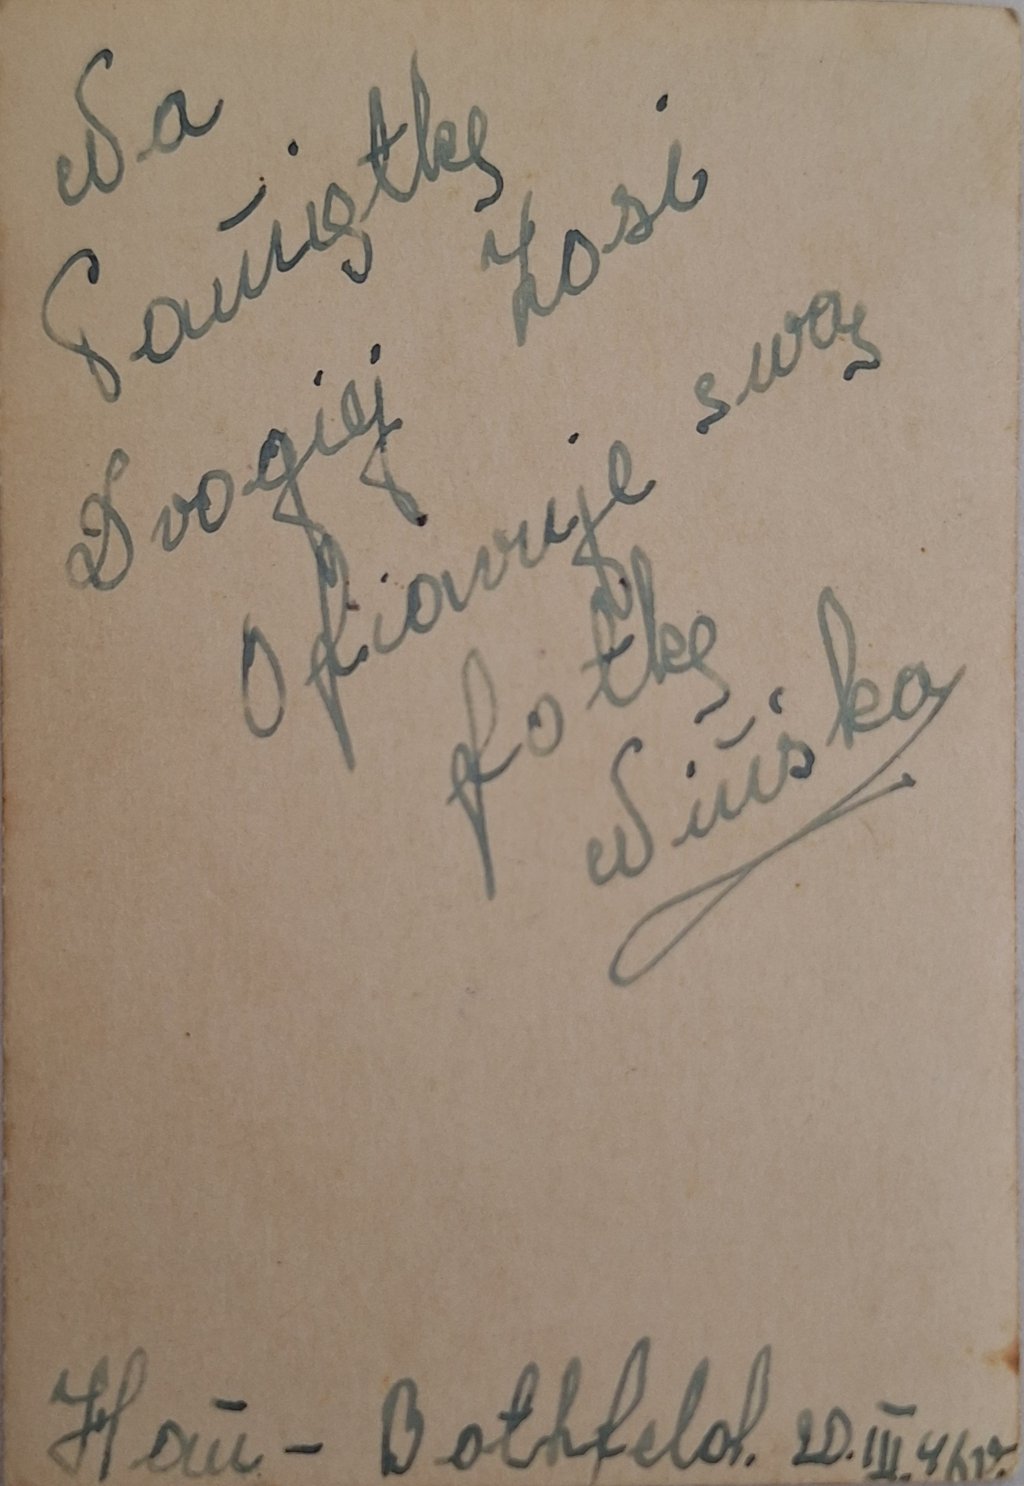 Na
Pamiątkę
Drogiej Zosi
Ofiaruje swą
fotkę
Niuśka
Han - Bothfeld. 20.III.46r.